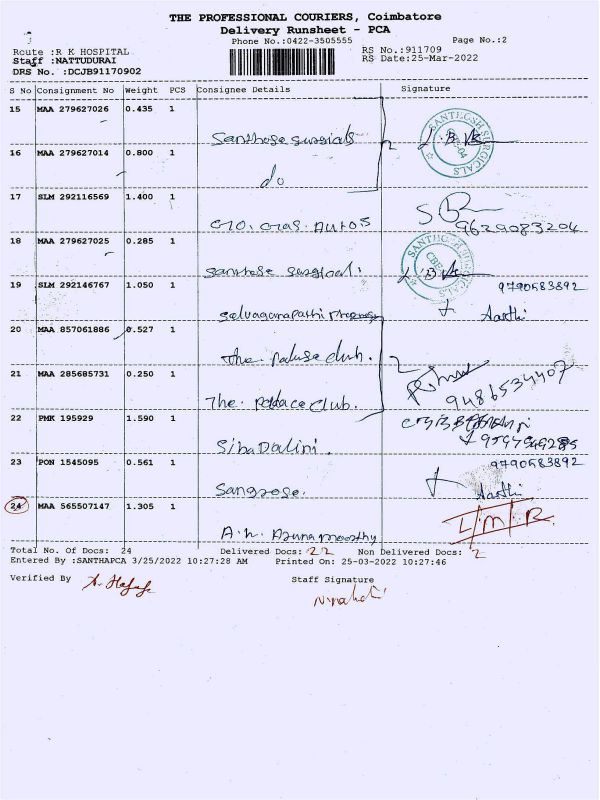 THE PROFESSIONAL COURIERS, Coimbatore
Delivery Runsheet - PCA
Phone No.:0422-3505555 Page No.:2
Route :R K HOSPITAL RS No.:911709
Staff :NATTUDURAI RS Date:25-Mar-2022
DRS No. :DCJB91170902
S No Consignment No Weight PCS Consignee Details Signature
15 MAA 279627026 0.435 1
Santhose surgicals
SANTHOSH SURGICALS
16 MAA 279627014 0.800 1
do
17 SLM 292116569 1.400 1
Autos 9629083204
18 MAA 279627025 0.285 1
Santhose surgical.
19 SLM 292146767 1.050 1 9790583892
Selvaganapathi Aarthi
20 MAA 857061886 0.527 1
The. club.
21 MAA 285685731 0.250 1
The. Palace club. 9486534407
22 PMK 195929 1.590 1
23 PON 1545095 0.561 1 9790583892
Sangrose. Aarthi
24 MAA 565507147 1.305 1
I/M/R
Total No. Of Docs: 24 Delivered Docs: 22 Non Delivered Docs: 2
Entered By :SANTHAPCA 3/25/2022 10:27:28 AM Printed On: 25-03-2022 10:27:46
Verified By Staff Signature